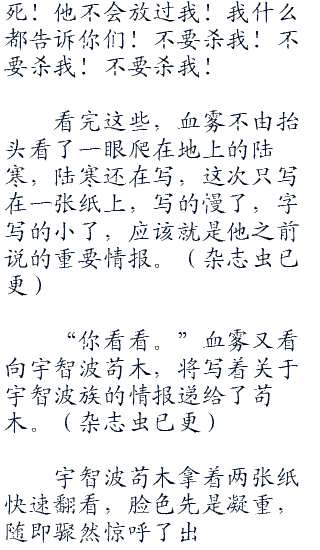 死！他不会放过我！我什么
都告诉你们！不要杀我！不
要杀我！不要杀我！
看完这些，血雾不由抬
头看了一眼爬在地上的陆
寒，陆寒还在写，这次只写
在一张纸上，写的漫了，字
写的小了，应该就是他之前
说的重要情报。（杂志虫已
更）
“你看看。”血雾又看
向宇智波苟木，将写着关于
宇智波族的情报递给了苟
木。（杂志虫已更）
宇智波苟木拿着两张纸
快速翻看，脸色先是凝重，
随即骤然惊呼了出